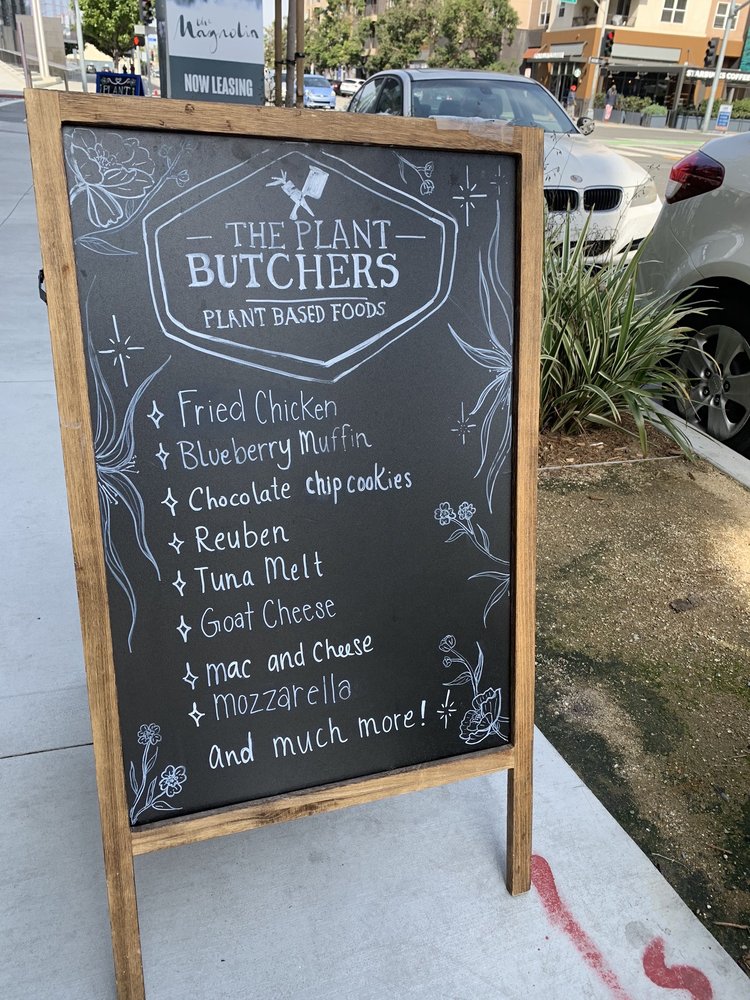 The
Magnolia
NOW LEASING
PLANT
STARBUCKS COFFEE
THE PLANT
BUTCHERS
PLANT BASED FOODS
Fried Chicken
Blueberry Muffin
Chocolate chip cookies
Reuben
Tuna Melt
Goat Cheese
mac and cheese
mozzarella
and much more!